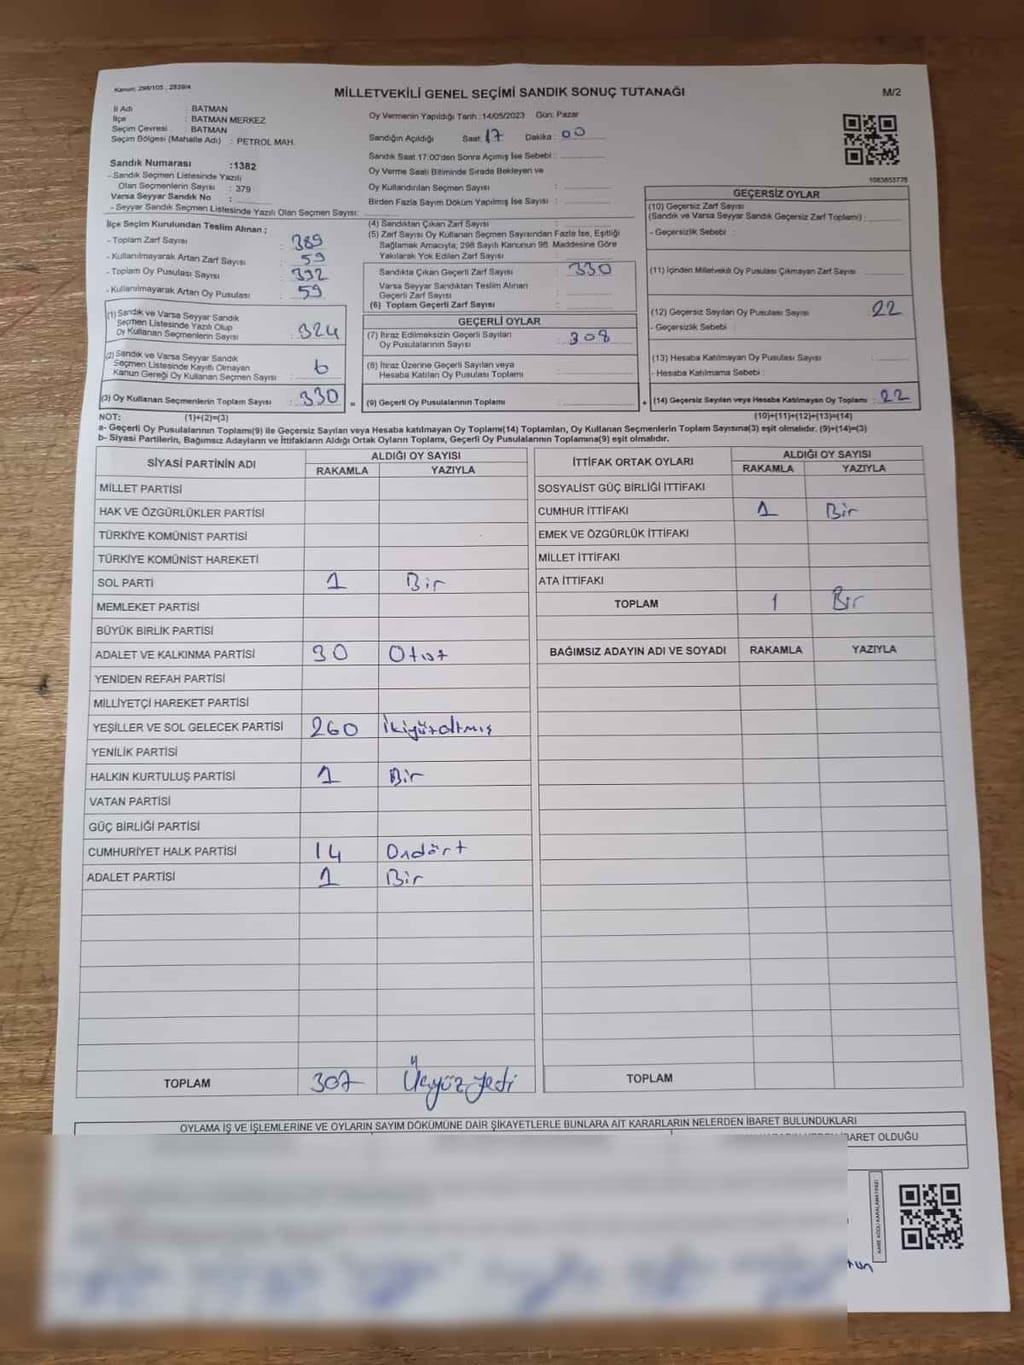 Kanun: 298/105 , 2839/4
MİLLETVEKİLİ GENEL SEÇİMİ SANDIK SONUÇ TUTANAĞI
M/2
İl Adı : BATMAN
İlçe : BATMAN MERKEZ
Seçim Çevresi : BATMAN
Seçim Bölgesi (Mahalle Adı) : PETROL MAH.
Sandık Numarası :1382
- Sandık Seçmen Listesinde Yazılı
Olan Seçmenlerin Sayısı : 379
Varsa Seyyar Sandık No :
- Seyyar Sandık Seçmen Listesinde Yazılı Olan Seçmen Sayısı:
Oy Vermenin Yapıldığı Tarih :14/05/2023 Gün: Pazar
Sandığın Açıldığı Saat: 17 Dakika: 00
Sandık Saat 17:00'den Sonra Açımış İse Sebebi :
Oy Verme Saati Bitiminde Sırada Bekleyen ve
Oy Kullandırılan Seçmen Sayısı :
Birden Fazla Sayım Döküm Yapılmış İse Sayısı :
1083853776
İlçe Seçim Kurulundan Teslim Alınan ;
- Toplam Zarf Sayısı : 389
- Kullanılmayarak Artan Zarf Sayısı : 59
- Toplam Oy Pusulası Sayısı : 392
- Kullanılmayarak Artan Oy Pusulası : 59
(1) Sandık ve Varsa Seyyar Sandık
Seçmen Listesinde Yazılı Olup
Oy Kullanan Seçmenlerin Sayısı : 324
(2) Sandık ve Varsa Seyyar Sandık
Seçmen Listesinde Kayıtlı Olmayan
Kanun Gereği Oy Kullanan Seçmen Sayısı : 6
(3) Oy Kullanan Seçmenlerin Toplam Sayısı : 330 =
(4) Sandıktan Çıkan Zarf Sayısı :
(5) Zarf Sayısı Oy Kullanan Seçmen Sayısından Fazla İse, Eşitliği
Sağlamak Amacıyla; 298 Sayılı Kanunun 98. Maddesine Göre
Yakılarak Yok Edilen Zarf Sayısı :
Sandıkta Çıkan Geçerli Zarf Sayısı : 330
Varsa Seyyar Sandıktan Teslim Alınan
Geçerli Zarf Sayısı :
(6) Toplam Geçerli Zarf Sayısı :
GEÇERLİ OYLAR
(7) İtiraz Edilmeksizin Geçerli Sayılan
Oy Pusulalarının Sayısı : 308
(8) İtiraz Üzerine Geçerli Sayılan veya
Hesaba Katılan Oy Pusulası Toplamı :
(9) Geçerli Oy Pusulalarının Toplamı : +
GEÇERSİZ OYLAR
(10) Geçersiz Zarf Sayısı
(Sandık ve Varsa Seyyar Sandık Geçersiz Zarf Toplamı) :
- Geçersizlik Sebebi :
(11) İçinden Milletvekili Oy Pusulası Çıkmayan Zarf Sayısı :
(12) Geçersiz Sayılan Oy Pusulası Sayısı : 22
- Geçersizlik Sebebi :
(13) Hesaba Katılmayan Oy Pusulası Sayısı :
- Hesaba Katılmama Sebebi :
(14) Geçersiz Sayılan veya Hesaba Katılmayan Oy Toplamı : 22
NOT: (1)+(2)=(3) (10)+(11)+(12)+(13)=(14)
a- Geçerli Oy Pusulalarının Toplamı(9) ile Geçersiz Sayılan veya Hesaba Katılmayan Oy Toplamı(14) Toplamları, Oy Kullanan Seçmenlerin Toplam Sayısına(3) eşit olmalıdır. (9)+(14)=(3)
b- Siyasi Partilerin, Bağımsız Adayların ve İttifakların Aldığı Ortak Oyların Toplamı, Geçerli Oy Pusulalarının Toplamına(9) eşit olmalıdır.
SİYASİ PARTİNİN ADI ALDIĞI OY SAYISI RAKAMLA YAZIYLA
MİLLET PARTİSİ
HAK VE ÖZGÜRLÜKLER PARTİSİ
TÜRKİYE KOMÜNİST PARTİSİ
TÜRKİYE KOMÜNİST HAREKETİ
SOL PARTİ 1 Bir
MEMLEKET PARTİSİ
BÜYÜK BİRLİK PARTİSİ
ADALET VE KALKINMA PARTİSİ 30 Otuz
YENİDEN REFAH PARTİSİ
MİLLİYETÇİ HAREKET PARTİSİ
YEŞİLLER VE SOL GELECEK PARTİSİ 260 İkiyüzaltmış
YENİLİK PARTİSİ
HALKIN KURTULUŞ PARTİSİ 1 Bir
VATAN PARTİSİ
GÜÇ BİRLİĞİ PARTİSİ
CUMHURİYET HALK PARTİSİ 14 Ondört
ADALET PARTİSİ 1 Bir
TOPLAM 307 Üçyüz yedi
İTTİFAK ORTAK OYLARI ALDIĞI OY SAYISI RAKAMLA YAZIYLA
SOSYALİST GÜÇ BİRLİĞİ İTTİFAKI
CUMHUR İTTİFAKI 1 Bir
EMEK VE ÖZGÜRLÜK İTTİFAKI
MİLLET İTTİFAKI
ATA İTTİFAKI
TOPLAM 1 Bir
BAĞIMSIZ ADAYIN ADI VE SOYADI RAKAMLA YAZIYLA
TOPLAM
OYLAMA İŞ VE İŞLEMLERİNE VE OYLARIN SAYIM DÖKÜMÜNE DAİR ŞİKAYETLERLE BUNLARA AİT KARARLARIN NELERDEN İBARET BULUNDUKLARI
İBARET OLDUĞU